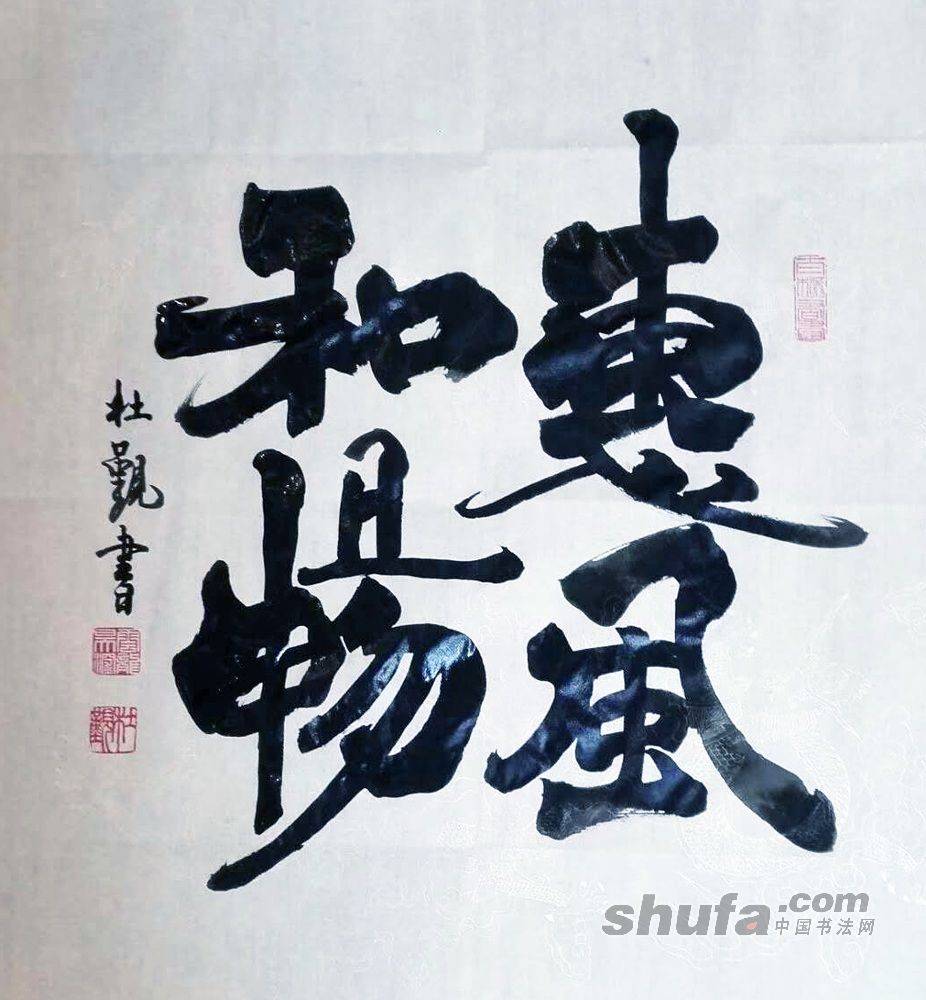 惠风
和且畅
杜觐書
shufa.com
中国书法网